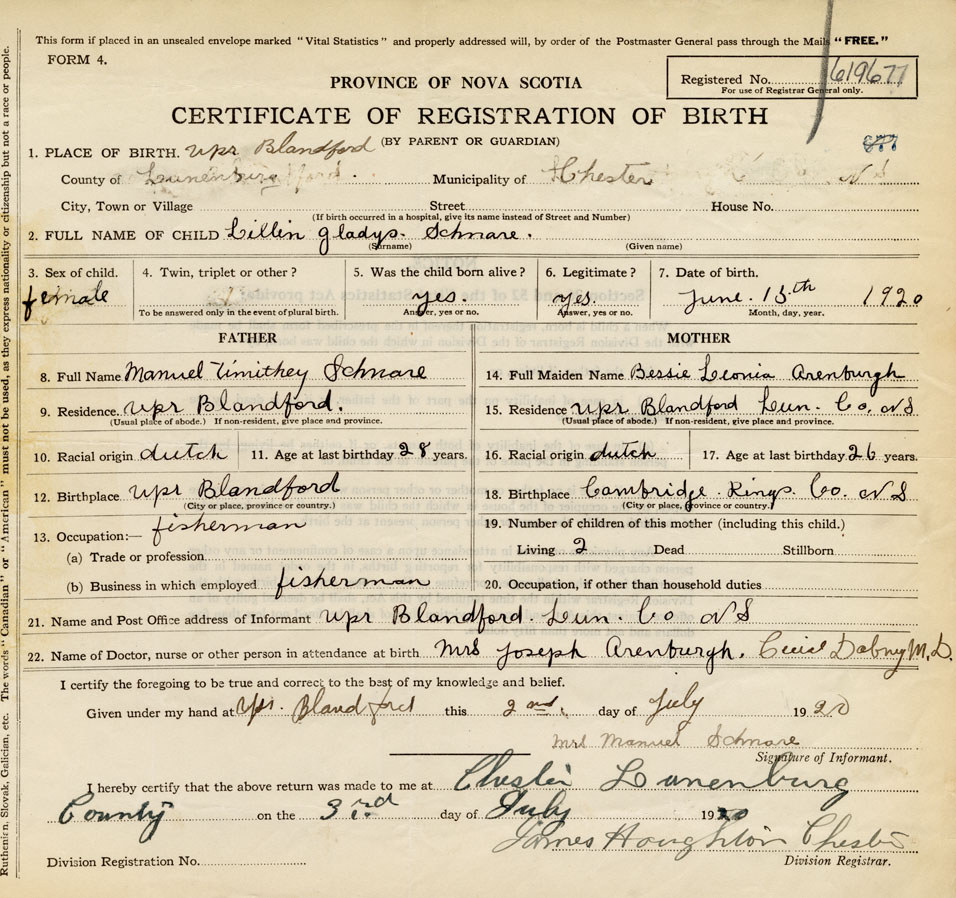 This form if placed in an unsealed envelope marked "Vital Statistics" and properly addressed will, by order of the Postmaster General pass through the Mails "FREE."
FORM 4.
PROVINCE OF NOVA SCOTIA
Registered No. 619677
For use of Registrar General only.
CERTIFICATE OF REGISTRATION OF BIRTH
(BY PARENT OR GUARDIAN)
677
1. PLACE OF BIRTH. upr Blandford
County of Lunenburg Municipality of Chester NS
City, Town or Village Street House No.
(If birth occurred in a hospital, give its name instead of Street and Number)
2. FULL NAME OF CHILD Lillin gladys. Schnare.
(Surname) (Given name)
3. Sex of child. 4. Twin, triplet or other? 5. Was the child born alive? 6. Legitimate? 7. Date of birth.
female yes. yes. June. 15th 1920
To be answered only in the event of plural birth. Answer, yes or no. Answer, yes or no. Month, day, year.
FATHER MOTHER
8. Full Name Manuel Timithey Schnare 14. Full Maiden Name Bessie Leonia Arenburgh
9. Residence. upr Blandford. 15. Residence upr Blandford Lun. Co. NS
(Usual place of abode.) If non-resident, give place and province. (Usual place of abode.) If non-resident, give place and province.
10. Racial origin dutch 11. Age at last birthday 28 years. 16. Racial origin dutch 17. Age at last birthday 26 years.
12. Birthplace upr Blandford 18. Birthplace Cambridge. Kings. Co. NS
(City or place, province or country.) (City or place, province or country.)
13. Occupation:— fisherman 19. Number of children of this mother (including this child.)
(a) Trade or profession Living 2 Dead Stillborn
(b) Business in which employed fisherman 20. Occupation, if other than household duties
21. Name and Post Office address of Informant upr Blandford. Lun. Co NS
22. Name of Doctor, nurse or other person in attendance at birth Mrs Joseph Arenburgh. M.D.
I certify the foregoing to be true and correct to the best of my knowledge and belief.
Given under my hand at Upr. Blandford this 2nd. day of July 1920
Mrs Manuel Schnare
Signature of Informant.
I hereby certify that the above return was made to me at Chester Lunenburg
County on the 3rd day of July 1920
James Houghton Chester
Division Registration No. Division Registrar.
Ruthenien, Slovak, Galician, etc. The words "Canadian" or "American" must not be used, as they express nationality or citizenship but not a race or people.